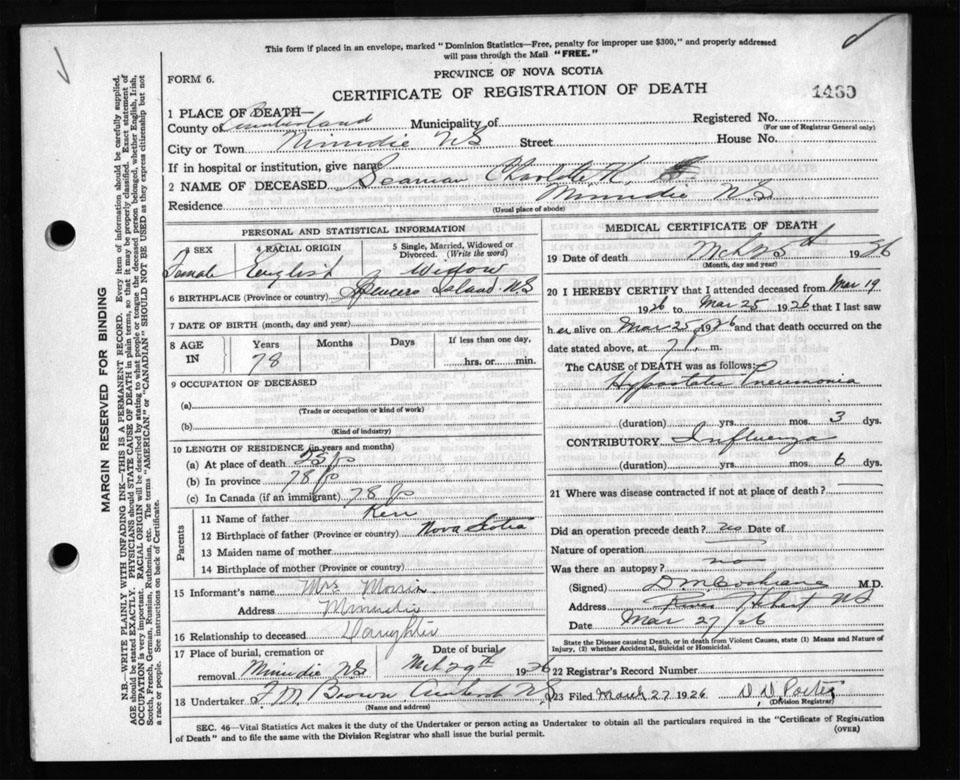 This form if placed in an envelope, marked "Dominion Statistics—Free, penalty for improper use $300," and properly addressed
will pass through the Mail "FREE."
FORM 6.
PROVINCE OF NOVA SCOTIA
CERTIFICATE OF REGISTRATION OF DEATH
1480
1 PLACE OF DEATH—
County of Cumberland Municipality of
Registered No.
(For use of Registrar General only)
City or Town Minudie NS Street House No.
If in hospital or institution, give name
2 NAME OF DECEASED Seaman Charlotte K.
Residence Minudie N.S
(Usual place of abode)
PERSONAL AND STATISTICAL INFORMATION
3 SEX 4 RACIAL ORIGIN 5 Single, Married, Widowed or
Divorced. (Write the word)
Female English Widow
6 BIRTHPLACE (Province or country) Spencers Island NS
7 DATE OF BIRTH (month, day and year)
8 AGE IN Years Months Days If less than one day,
78 hrs. or min.
9 OCCUPATION OF DECEASED
(a)
(Trade or occupation or kind of work)
(b)
(Kind of industry)
10 LENGTH OF RESIDENCE (in years and months)
(a) At place of death
(b) In province 78
(c) In Canada (if an immigrant) 78
Parents
11 Name of father Kerr
12 Birthplace of father (Province or country) Nova Scotia
13 Maiden name of mother
14 Birthplace of mother (Province or country)
15 Informant's name Mrs
Address Minudie
16 Relationship to deceased Daughter
17 Place of burial, cremation or Date of burial
removal Minudie NS Mch 29th 1926
18 Undertaker Brown Amherst N.S
(Name and address)
MEDICAL CERTIFICATE OF DEATH
19 Date of death Mch 25th 1926
(Month, day and year)
20 I HEREBY CERTIFY that I attended deceased from Mar 19
1926 to Mar 25 1926 that I last saw
h er alive on Mar 25 1926 and that death occurred on
date stated above, at 7 m.
The CAUSE of DEATH was as follows:
Hypostatic Pneumonia
(duration) yrs. mos. 3 dys.
CONTRIBUTORY Influenza
(duration) yrs. mos. 6 dys.
21 Where was disease contracted if not at place of death?
Did an operation precede death? no Date of
Nature of operation
Was there an autopsy? no
(Signed) D M Cochrane M.D.
Address River Hebert NS
Date Mar 27/26
State the Disease causing Death, or in death from Violent Causes, state (1) Means and Nature of
Injury, (2) whether Accidental, Suicidal or Homicidal.
22 Registrar's Record Number
23 Filed March 27 1926 Porter
(Division Registrar)
SEC. 46—Vital Statistics Act makes it the duty of the Undertaker or person acting as Undertaker to obtain all the particulars required in the "Certificate of Registration
of Death" and to file the same with the Division Registrar who shall issue the burial permit.
(OVER)
MARGIN RESERVED FOR BINDING
N.B.—WRITE PLAINLY WITH UNFADING INK—THIS IS A PERMANENT RECORD. Every item of information should be carefully supplied.
AGE should be stated EXACTLY. PHYSICIANS should STATE CAUSE OF DEATH in plain terms, so that it may be properly classified. Exact statement of
OCCUPATION is very important. RACIAL ORIGIN will be described by stating to what people or tongue the deceased person belonged, whether English, Irish,
Scotch, French, German, Russian, Ruthenian, etc. The terms "AMERICAN," or "CANADIAN" SHOULD NOT BE USED as they express citizenship but not
a race or people. See instructions on back of Certificate.